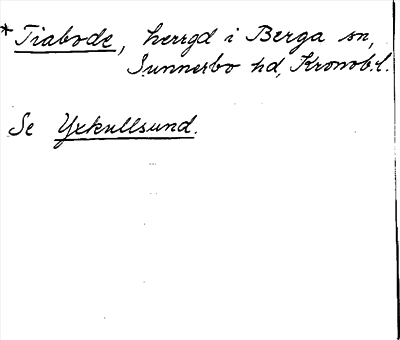 * Tiabode, herrgd i Berga sn,
Sunnerbo hd, Kronob. l.
Se Yxkullsund.